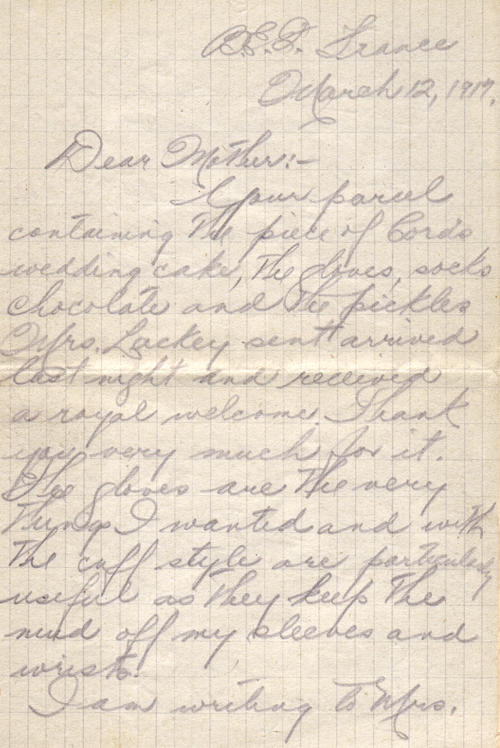 B.E.F. France
March 12, 1917.
Dear Mother:-
Your parcel
containing the piece of Cord's
wedding cake, the gloves, socks
chocolate and the pickles
Mrs. Lackey sent arrived
last night and received
a royal welcome. Thank
you very much for it.
The gloves are the very
things I wanted and with
the cuff style are particularly
useful as they keep the
mud off my sleeves and
wrists.
I am writing to Mrs.